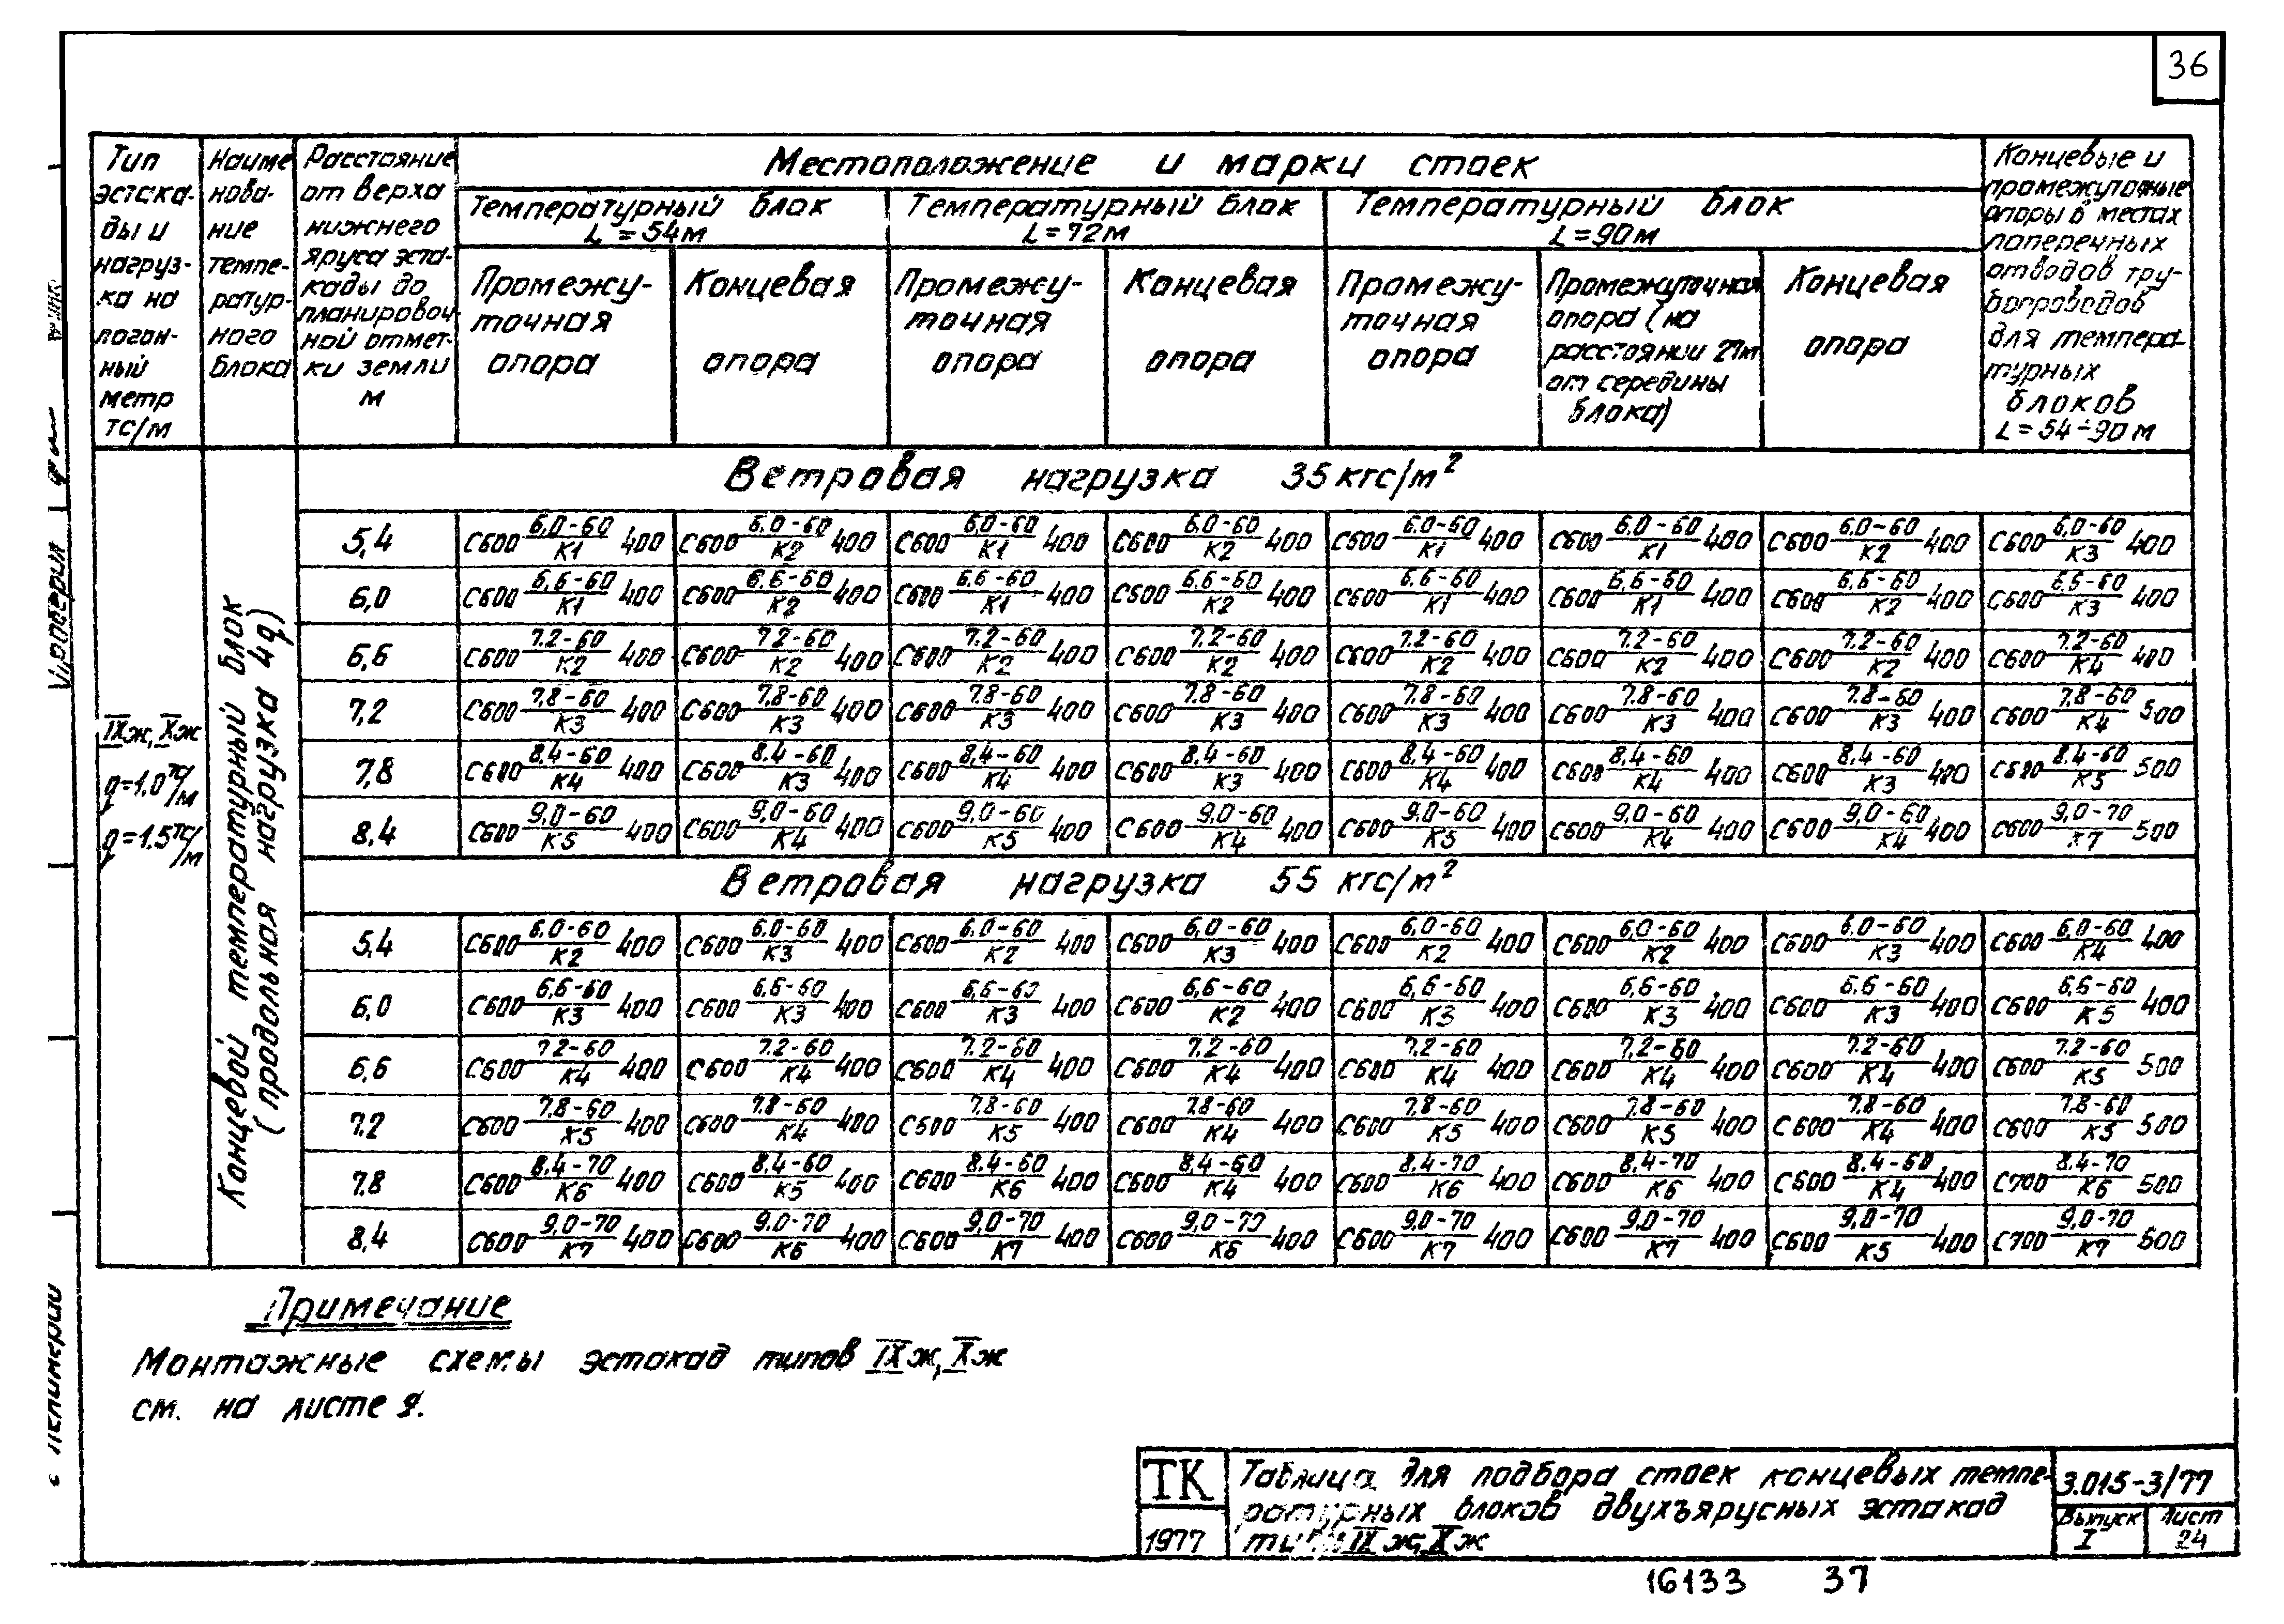 36
Тип эстакады и нагрузка на погонный метр тс/м
Наименование температурного блока
Расстояние от верха нижнего яруса эстакады до планировочной отметки земли м
Местоположение и марки стоек
Температурный блок L=54м
Температурный блок L=72м
Температурный блок L=90м
Промежуточная опора
Концевая опора
Промежуточная опора
Концевая опора
Промежуточная опора
Промежуточная опора (на расстоянии 21м от середины блока)
Концевая опора
Концевые и промежуточные опоры в местах поперечных отводов трубопроводов для температурных блоков L=54÷90м
IXж, Xж
q=1.0тс/м
q=1.5тс/м
Концевой температурный блок
(продольная нагрузка 4q)
Ветровая нагрузка 35кгс/м²
5,4 С600 6,0-60/К1 400 С600 6,0-60/К2 400 С600 6,0-60/К1 400 С600 6,0-60/К2 400 С600 6,0-60/К1 400 С600 6,0-60/К1 400 С600 6,0-60/К2 400 С600 6,0-60/К3 400
6,0 С600 6,6-60/К1 400 С600 6,6-60/К2 400 С600 6,6-60/К1 400 С600 6,6-60/К2 400 С600 6,6-60/К1 400 С600 6,6-60/К1 400 С600 6,6-60/К2 400 С600 6,6-60/К3 400
6,6 С600 7.2-60/К2 400 С600 7.2-60/К2 400 С600 7.2-60/К2 400 С600 7.2-60/К2 400 С600 7.2-60/К2 400 С600 7.2-60/К2 400 С600 7.2-60/К2 400 С600 7.2-60/К4 400
7,2 С600 7.8-60/К3 400 С600 7.8-60/К3 400 С600 7.8-60/К3 400 С600 7.8-60/К3 400 С600 7.8-60/К3 400 С600 7.8-60/К3 400 С600 7.8-60/К3 400 С600 7.8-60/К4 500
7,8 С600 8.4-60/К4 400 С600 8.4-60/К3 400 С600 8,4-60/К4 400 С600 8,4-60/К3 400 С600 8,4-60/К4 400 С600 8,4-60/К4 400 С600 8.4-60/К3 400 С600 8.4-60/К5 500
8,4 С600 9,0-60/К5 400 С600 9,0-60/К4 400 С600 9,0-60/К5 400 С600 9,0-60/К4 400 С600 9,0-60/К5 400 С600 9,0-60/К4 400 С600 9,0-60/К4 400 С600 9,0-70/К7 500
Ветровая нагрузка 55 кгс/м²
5,4 С600 6,0-60/К2 400 С600 6,0-60/К3 400 С600 6,0-60/К2 400 С600 6,0-60/К3 400 С600 6,0-60/К2 400 С600 6,0-60/К2 400 С600 6,0-60/К3 400 С600 6,0-60/К4 400
6,0 С600 6,6-60/К3 400 С600 6,6-60/К3 400 С600 6,6-60/К3 400 С600 6,6-60/К2 400 С600 6,6-60/К3 400 С600 6,6-60/К3 400 С600 6.6-60/К3 400 С600 6,6-60/К5 400
6,6 С600 7.2-60/К4 400 С600 7.2-60/К4 400 С600 7.2-60/К4 400 С600 7.2-60/К4 400 С600 7.2-60/К4 400 С600 7.2-60/К4 400 С600 7.2-60/К4 400 С600 7.2-60/К5 500
7.2 С600 7.8-60/К5 400 С600 7.8-60/К4 400 С600 7.8-60/К5 400 С600 7.8-60/К4 400 С600 7.8-60/К5 400 С600 7.8-60/К5 400 С600 7.8-60/К4 400 С600 7.8-60/К5 500
7.8 С600 8.4-70/К6 400 С600 8,4-60/К5 400 С600 8,4-60/К6 400 С600 8,4-60/К4 400 С600 8,4-70/К6 400 С600 8,4-70/К6 400 С600 8.4-60/К4 400 С700 8.4-70/К6 500
8,4 С600 9,0-70/К7 400 С600 9.0-70/К6 400 С600 9,0-70/К7 400 С600 9,0-70/К6 400 С600 9,0-70/К7 400 С600 9,0-70/К7 400 С600 9,0-70/К5 400 С700 9,0-70/К7 500
Примечание
Монтажные схемы эстакад типов IXж, Xж
см. на листе 8.
ТК
1977
Таблица для подбора стоек концевых темпе-
ратурных блоков двухъярусных эстакад
типов IXж, Xж
3.015-3/77
Выпуск I
Лист 24
16133 37